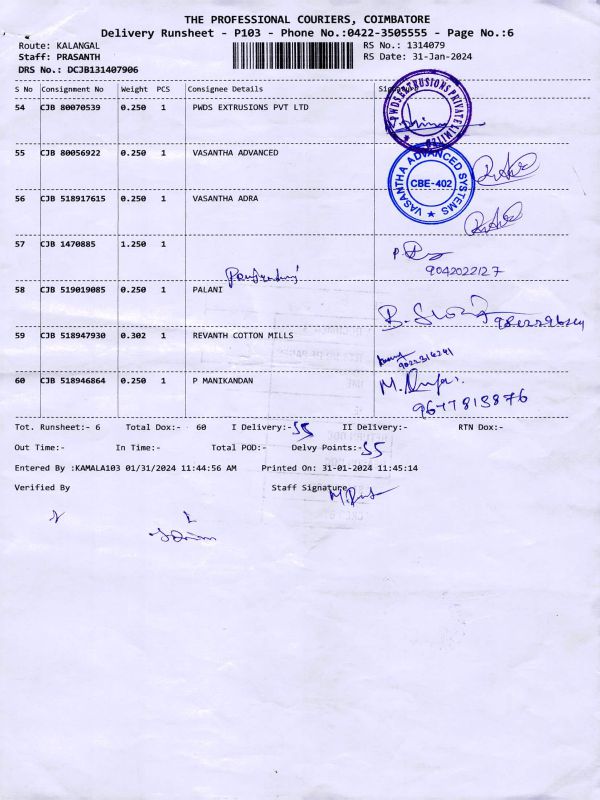 THE PROFESSIONAL COURIERS, COIMBATORE
Delivery Runsheet - P103 - Phone No.:0422-3505555 - Page No.:6
Route: KALANGAL RS No.: 1314079
Staff: PRASANTH RS Date: 31-Jan-2024
DRS No.: DCJB131407906
S No Consignment No Weight PCS Consignee Details
54 CJB 80070539 0.250 1 PWDS EXTRUSIONS PVT LTD
PWDS EXTRUSIONS PRIVATE LIMITED
55 CJB 80056922 0.250 1 VASANTHA ADVANCED
VASANTHA ADVANCED SYSTEMS
CBE-402
56 CJB 518917615 0.250 1 VASANTHA ADRA
57 CJB 1470885 1.250 1
9042022127
58 CJB 519019085 0.250 1 PALANI
59 CJB 518947930 0.302 1 REVANTH COTTON MILLS
60 CJB 518946864 0.250 1 P MANIKANDAN
9677813876
Tot. Runsheet:- 6 Total Dox:- 60 I Delivery:-55 II Delivery:- RTN Dox:-
Out Time:- In Time:- Total POD:- Delvy Points:-55
Entered By :KAMALA103 01/31/2024 11:44:56 AM Printed On: 31-01-2024 11:45:14
Verified By Staff Signature